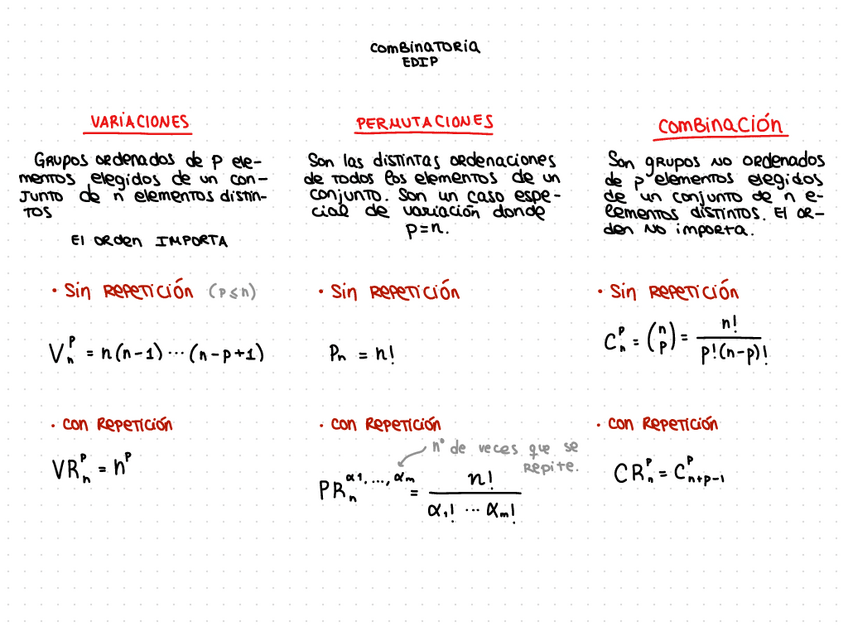 COMBINATORIA
EDIP
VARIACIONES
GRUPOS ORDENADOS DE P ELE-
MENTOS ELEGIDOS DE UN CON-
JUNTO DE n ELEMENTOS DISTIN-
TOS
El ORDEN IMPORTA
• Sin REPETICIÓN (p≤n)
V_n^p = n(n-1) ··· (n-p+1)
• CON REPETICIÓN
VR_n^p = n^p
PERMUTACIONES
Son las DISTINTAS ORDENACIONES
DE TODOS los ELEMENTOS DE UN
CONJUNTO. Son un CASO ESPE-
CIAL DE VARIACIÓN DONDE
P=n.
• Sin REPETICIÓN
P_n = n!
• CON REPETICIÓN
nº de veces que se
REPITE.
PR_n^{α1, ..., αm} = n! / (α₁! ··· αm!)
COMBINACIÓN
Son GRUPOS NO ORDENADOS
DE P ELEMENTOS ELEGIDOS
DE UN CONJUNTO DE n E-
LEMENTOS DISTINTOS. El OR-
DEN NO IMPORTA.
• Sin REPETICIÓN
C_n^p = (n p) = n! / (p!(n-p)!)
• CON REPETICIÓN
CR_n^p = C_{n+p-1}^p